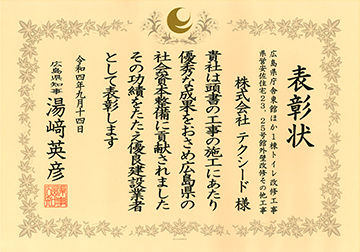 表彰状
広島県庁舎東館ほか1棟トイレ改修工事
県営安佐住宅23、25号館外壁改修その他工事
株式会社テクシード 様
貴社は頭書の工事の施工にあたり
優秀な成果をおさめ広島県の
社会資本整備に貢献されました
その功績をたたえ優良建設業者
として表彰します
令和四年九月十四日
広島県知事 湯﨑英彦